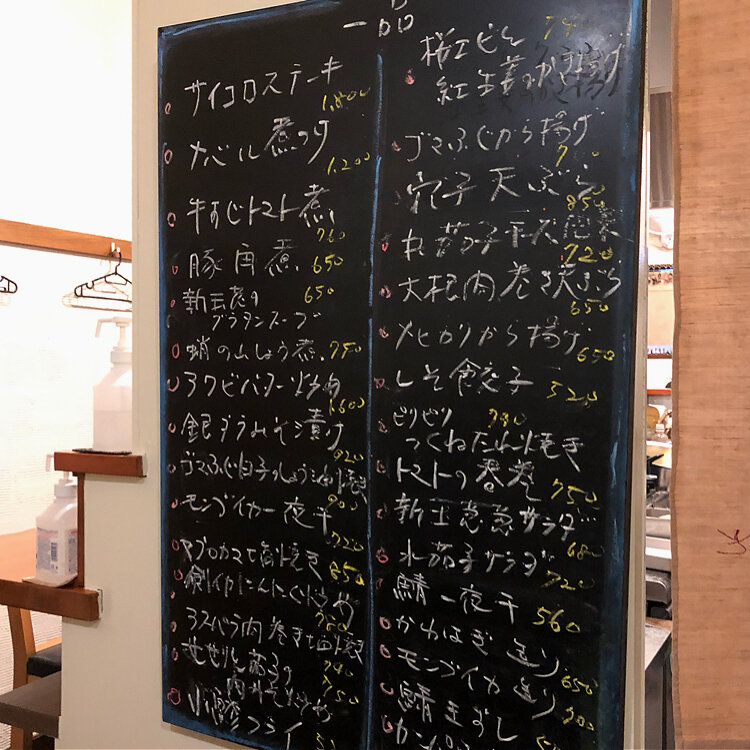 一品
サイコロステーキ
1,800
メバル煮つけ
1,200
牛すじトマト煮
760
豚角煮 650
新玉葱の 650
グラタンスープ
蛸の山しょう煮 750
アワビバター炒め
1,600
銀ダラみそ漬け
920
ゴマふぐ白子のしょう油焼
900
モンゴイカ一夜干
720
マグロカマ塩焼き
850
剣イカにんにく炒め
780
アスパラ肉巻き
750
小鯵フライ
桜エビと
紅生姜のかき揚げ
ゴマふぐから揚げ
穴子天ぷら
850
丸茄子
720
大根肉巻き天ぷら
650
メヒカリから揚げ
650
しそ餃子 520
ピリピリ 730
つくねたれ焼き
トマトの春巻
750
新玉葱サラダ
680
水茄子サラダ
720
鯖一夜干
560
かわはぎ造り
650
モンゴイカ造り
900
鯖きずし